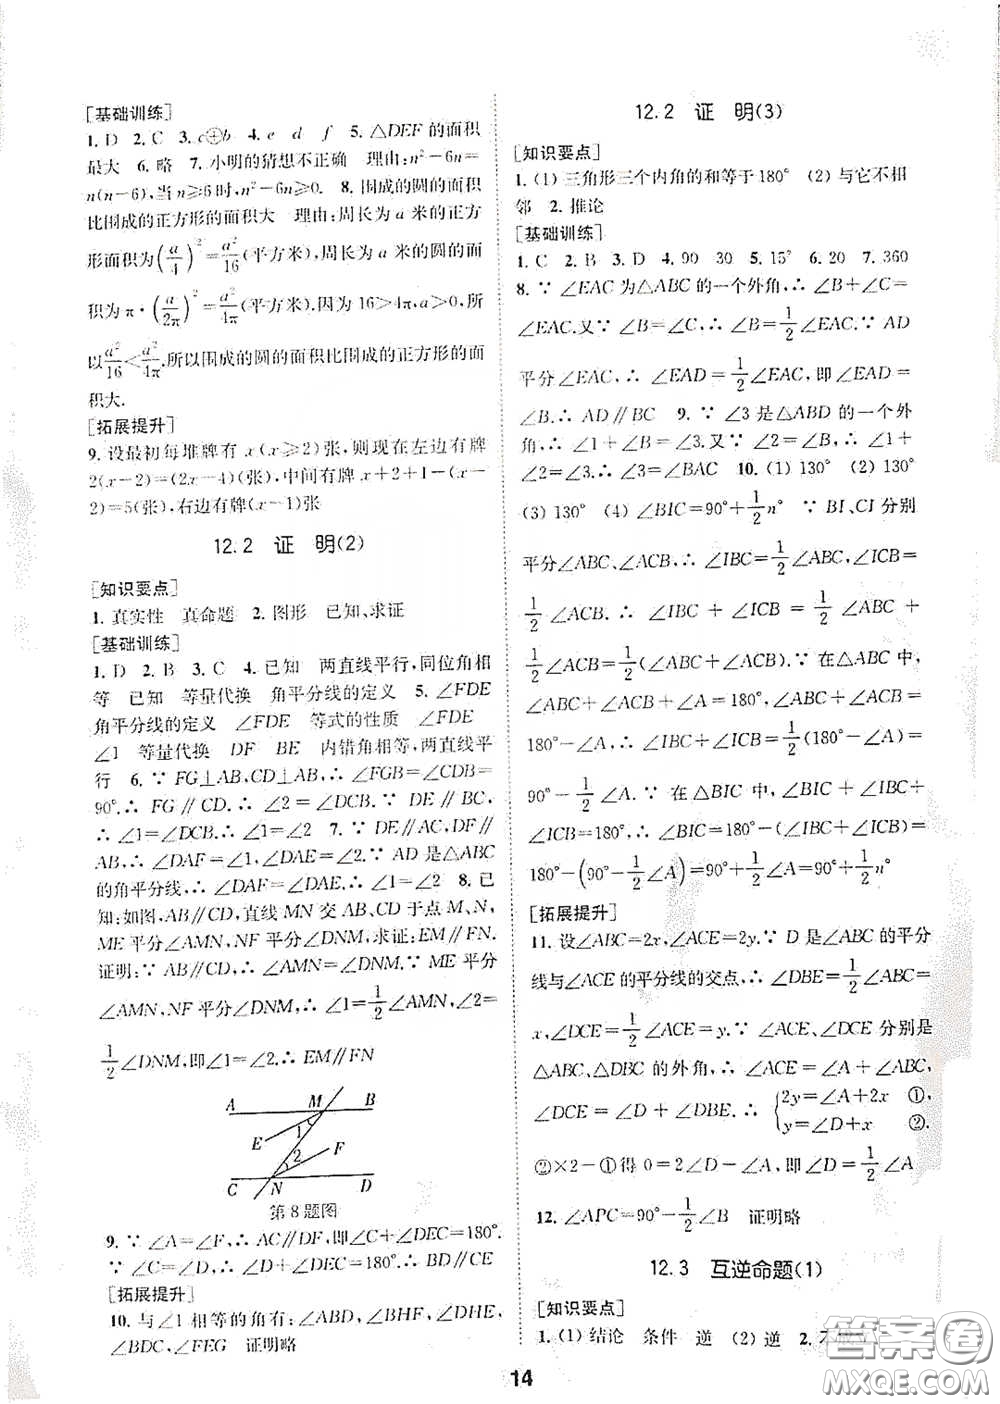 [基础训练]
1. D 2. C 3. c⊕b 4. e d f 5. △DEF的面积
最大 6. 略 7. 小明的猜想不正确 理由:n²-6n=
n(n-6),当n≥6时,n²-6n≥0. 8. 围成的圆的面积
比围成的正方形的面积大 理由:周长为a米的正方
形面积为(a/4)²=a²/16(平方米),周长为a米的圆的面
积为π·(a/2π)²=a²/4π(平方米).因为16>4π,a>0,所
以a²/16<a²/4π.所以围成的圆的面积比围成的正方形的面
积大.
[拓展提升]
9. 设最初每堆牌有x(x≥2)张,则现在左边有牌
2(x-2)=(2x-4)(张),中间有牌x+2+1-(x-
2)=5(张),右边有牌(x-1)张
12.2 证 明(2)
[知识要点]
1. 真实性 真命题 2. 图形 已知、求证
[基础训练]
1. D 2. B 3. C 4. 已知 两直线平行,同位角相
等 已知 等量代换 角平分线的定义 5. ∠FDE
角平分线的定义 ∠FDE 等式的性质 ∠FDE
∠1 等量代换 DF BE 内错角相等,两直线平
行 6. ∵ FG⊥AB,CD⊥AB,∴ ∠FGB=∠CDB=
90°.∴ FG∥CD.∴ ∠2=∠DCB.∵ DE∥BC,
∴ ∠1=∠DCB.∴ ∠1=∠2 7. ∵ DE∥AC,DF∥
AB,∴ ∠DAF=∠1,∠DAE=∠2.∵ AD是△ABC
的角平分线,∴ ∠DAF=∠DAE.∴ ∠1=∠2 8. 已
知:如图,AB∥CD,直线MN交AB、CD于点M、N,
ME平分∠AMN,NF平分∠DNM.求证:EM∥FN.
证明:∵ AB∥CD,∴ ∠AMN=∠DNM.∵ ME平分
∠AMN,NF平分∠DNM,∴ ∠1=1/2∠AMN,∠2=
1/2∠DNM,即∠1=∠2.∴ EM∥FN
A M B
E 1
2 F
C N D
第8题图
9. ∵ ∠A=∠F,∴ AC∥DF,即∠C+∠DEC=180°.
∵ ∠C=∠D,∴ ∠D+∠DEC=180°.∴ BD∥CE
[拓展提升]
10. 与∠1相等的角有:∠ABD,∠BHF,∠DHE,
∠BDC,∠FEG 证明略
12.2 证 明(3)
[知识要点]
1. (1) 三角形三个内角的和等于180° (2) 与它不相
邻 2. 推论
[基础训练]
1. C 2. B 3. D 4. 90 30 5. 15° 6. 20 7. 360
8. ∵ ∠EAC为△ABC的一个外角,∴ ∠B+∠C=
∠EAC.又∵ ∠B=∠C,∴ ∠B=1/2∠EAC.∵ AD
平分∠EAC,∴ ∠EAD=1/2∠EAC,即∠EAD=
∠B.∴ AD∥BC 9. ∵ ∠3是△ABD的一个外
角,∴ ∠1+∠B=∠3.又∵ ∠2=∠B,∴ ∠1+
∠2=∠3.∴ ∠3=∠BAC 10. (1) 130° (2) 130°
(3) 130° (4) ∠BIC=90°+1/2n° ∵ BI、CI分别
平分∠ABC、∠ACB,∴ ∠IBC=1/2∠ABC,∠ICB=
1/2∠ACB.∴ ∠IBC+∠ICB=1/2∠ABC+
1/2∠ACB=1/2(∠ABC+∠ACB).∵ 在△ABC中,
∠ABC+∠ACB+∠A=180°,∴ ∠ABC+∠ACB=
180°-∠A,∴ ∠IBC+∠ICB=1/2(180°-∠A)=
90°-1/2∠A.∵ 在△BIC中,∠BIC+∠IBC+
∠ICB=180°,∴ ∠BIC=180°-(∠IBC+∠ICB)=
180°-(90°-1/2∠A)=90°+1/2∠A=90°+1/2n°
[拓展提升]
11. 设∠ABC=2x,∠ACE=2y.∵ D是∠ABC的平分
线与∠ACE的平分线的交点,∴ ∠DBE=1/2∠ABC=
x,∠DCE=1/2∠ACE=y.∵ ∠ACE、∠DCE分别是
△ABC、△DBC的外角,∴ ∠ACE=∠A+∠ABC,
∠DCE=∠D+∠DBE.∴ {2y=∠A+2x ①, y=∠D+x ②.
②×2-①得0=2∠D-∠A,即∠D=1/2∠A
12. ∠APC=90°-1/2∠B 证明略
12.3 互逆命题(1)
[知识要点]
1. (1) 结论 条件 逆 (2) 逆 2.
14
答案卷
MXQE.COM